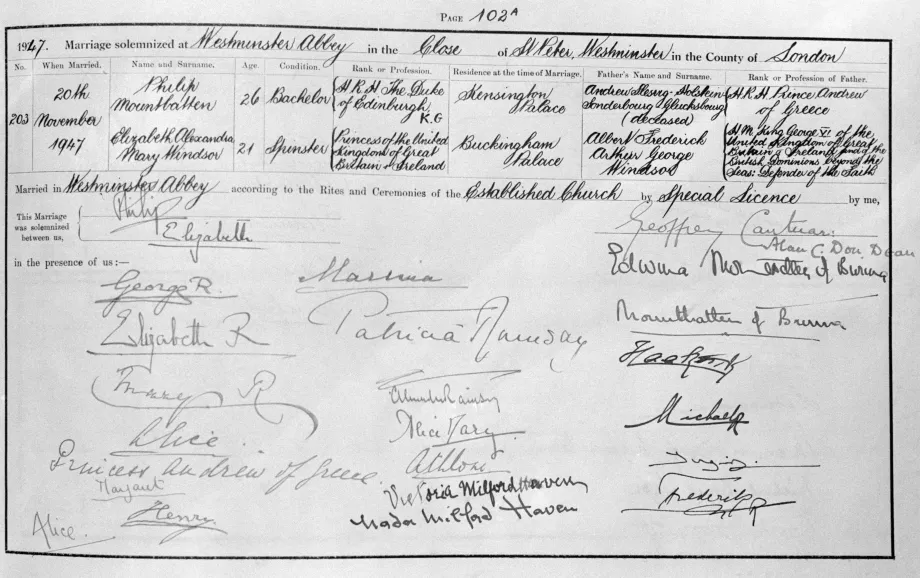 PAGE 102A
1947. Marriage solemnized at Westminster Abbey in the Close of St Peter, Westminster in the County of London
No. When Married. Name and Surname. Age. Condition. Rank or Profession. Residence at the time of Marriage. Father's Name and Surname. Rank or Profession of Father.
203
20th
November
1947
Philip
Mountbatten
26
Bachelor
H R H The Duke
of Edinburgh
K.G
Kensington
Palace
Andrew
Glucksburg
(deceased)
H. R. H Prince Andrew
of Greece
Elizabeth Alexandra
Mary Windsor
21
Spinster
Princess of the United
Kingdom of Great
Britain & Ireland
Buckingham
Palace
Albert Frederick
Arthur George
Windsor
H M King George VI of the
United Kingdom of Great
Britain & Ireland and of the
British Dominions beyond the
Seas: Defender of the Faith
Married in Westminster Abbey according to the Rites and Ceremonies of the Established Church by Special Licence by me,
This Marriage
was solemnized
between us,
Philip
Elizabeth
Geoffrey Cantuar:
Alan C. Don. Dean
in the presence of us:—
George R.
Elizabeth R
Mary R
Alice
Princess Andrew of Greece.
Margaret
Henry.
Alice.
Marina
Patricia Ramsay
Alexander Ramsay
Alice Mary
Athlone
Victoria Milford Haven
Nada Milford Haven
Edwina Mountbatten of Burma
Mountbatten of Burma
Haakon R
Michael R
Frederik R